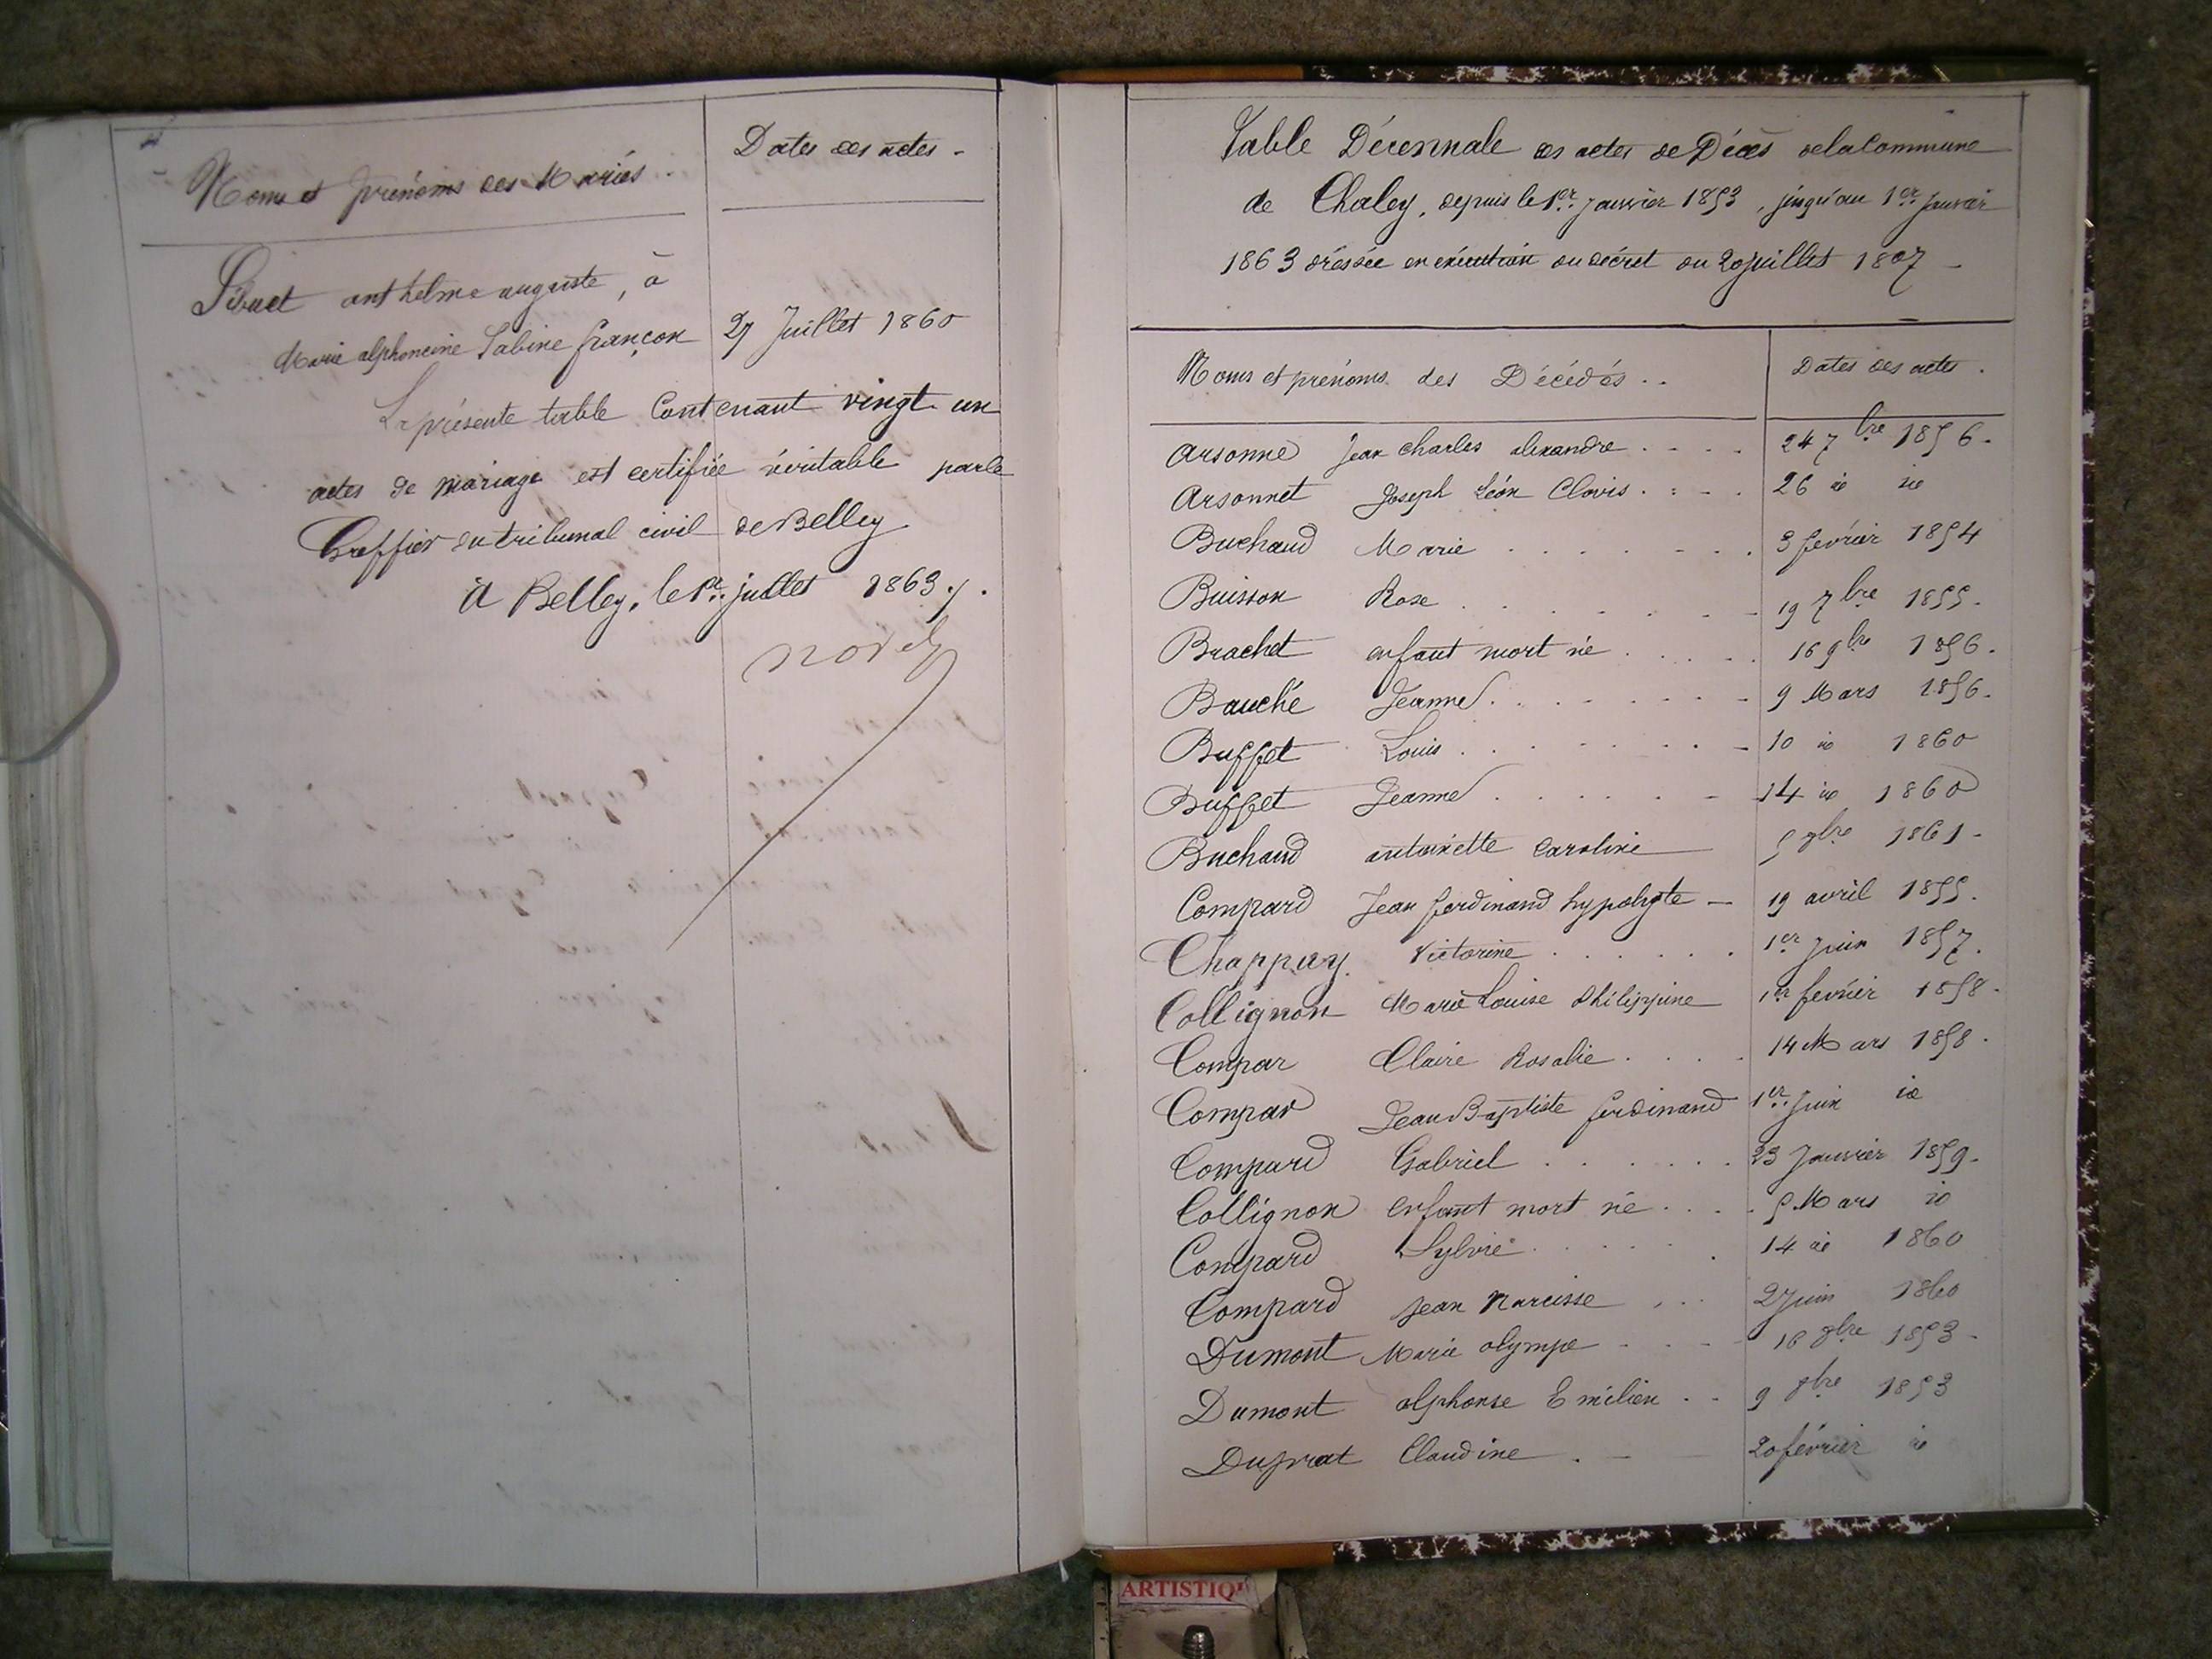 Noms et prénoms des Mariés.
Dates des actes -
Sibuet anthelme auguste, à
Marie alphoncine Sabine françon 27 Juillet 1860
La présente table Contenant vingt un
actes de mariage est certifiée véritable par le
Greffier du tribunal civil de Belley
à Belley, le 1er juillet 1863 /.
Table Décennale des actes de Décès de la Commune
de Chaley, depuis le 1er Janvier 1853, jusqu'au 1er Janvier
1863 dressée en exécution du décret du 20 juillet 1807 -
Noms et prénoms des Décédés ..
Dates des actes.
Arsonne Jean Charles alexandre .... 24 7bre 1856.
Arsonnet Joseph Léon Clovis .... 26 id id
Buchaud Marie ....... 3 février 1854
Buisson Rose ....... 19 7bre 1855.
Brachet enfant mort né ..... 16 9bre 1856.
Bauché Jeanne ....... 9 Mars 1856.
Buffet Louis ....... 10 id 1860
Buffet Jeanne ...... 14 id 1860
Buchaud antoinette Caroline 5 9bre 1861-
Compard Jean ferdinand hypolyte - 19 avril 1855.
Chappuy Victorine ...... 1er Juin 1857.
Collignon Marie Louise Philippine 1er fevrier 1858.
Compar Claire Rosalie .... 14 Mars 1858.
Compar Jean Baptiste ferdinand 1er Juin id
Compard Gabriel ...... 23 Janvier 1859.
Collignon Enfant mort né .... 5 Mars id
Compard Sylvie ...... 14 id 1860
Compard Jean Narcisse ... 2 Juin 1860
Dumont Marie olympe ... 16 8bre 1853-
Dumont alphonse Emilien .. 9 8bre 1853
Duprat Claudine . - 20 février id
ARTISTIQU